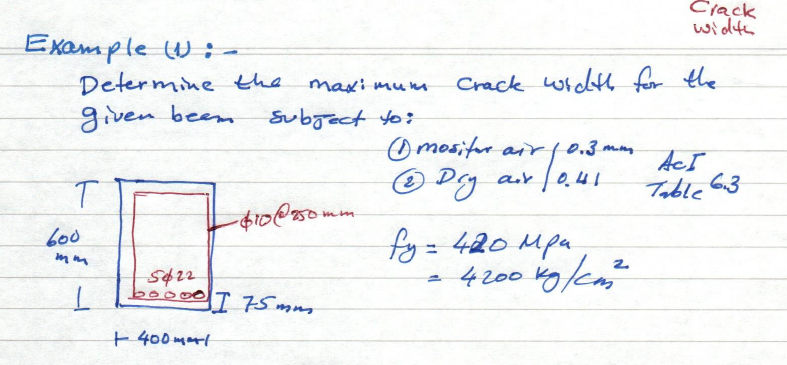 Crack
width
Example (1) : -
Determine the maximum crack width for the
given beam subject to:
① mositur air 0.3 mm
② Dry air 0.41
ACI
Table 6.3
φ10@250mm
600
mm
5φ22
75mm
400mm
fy = 420 Mpa
= 4200 kg/cm²